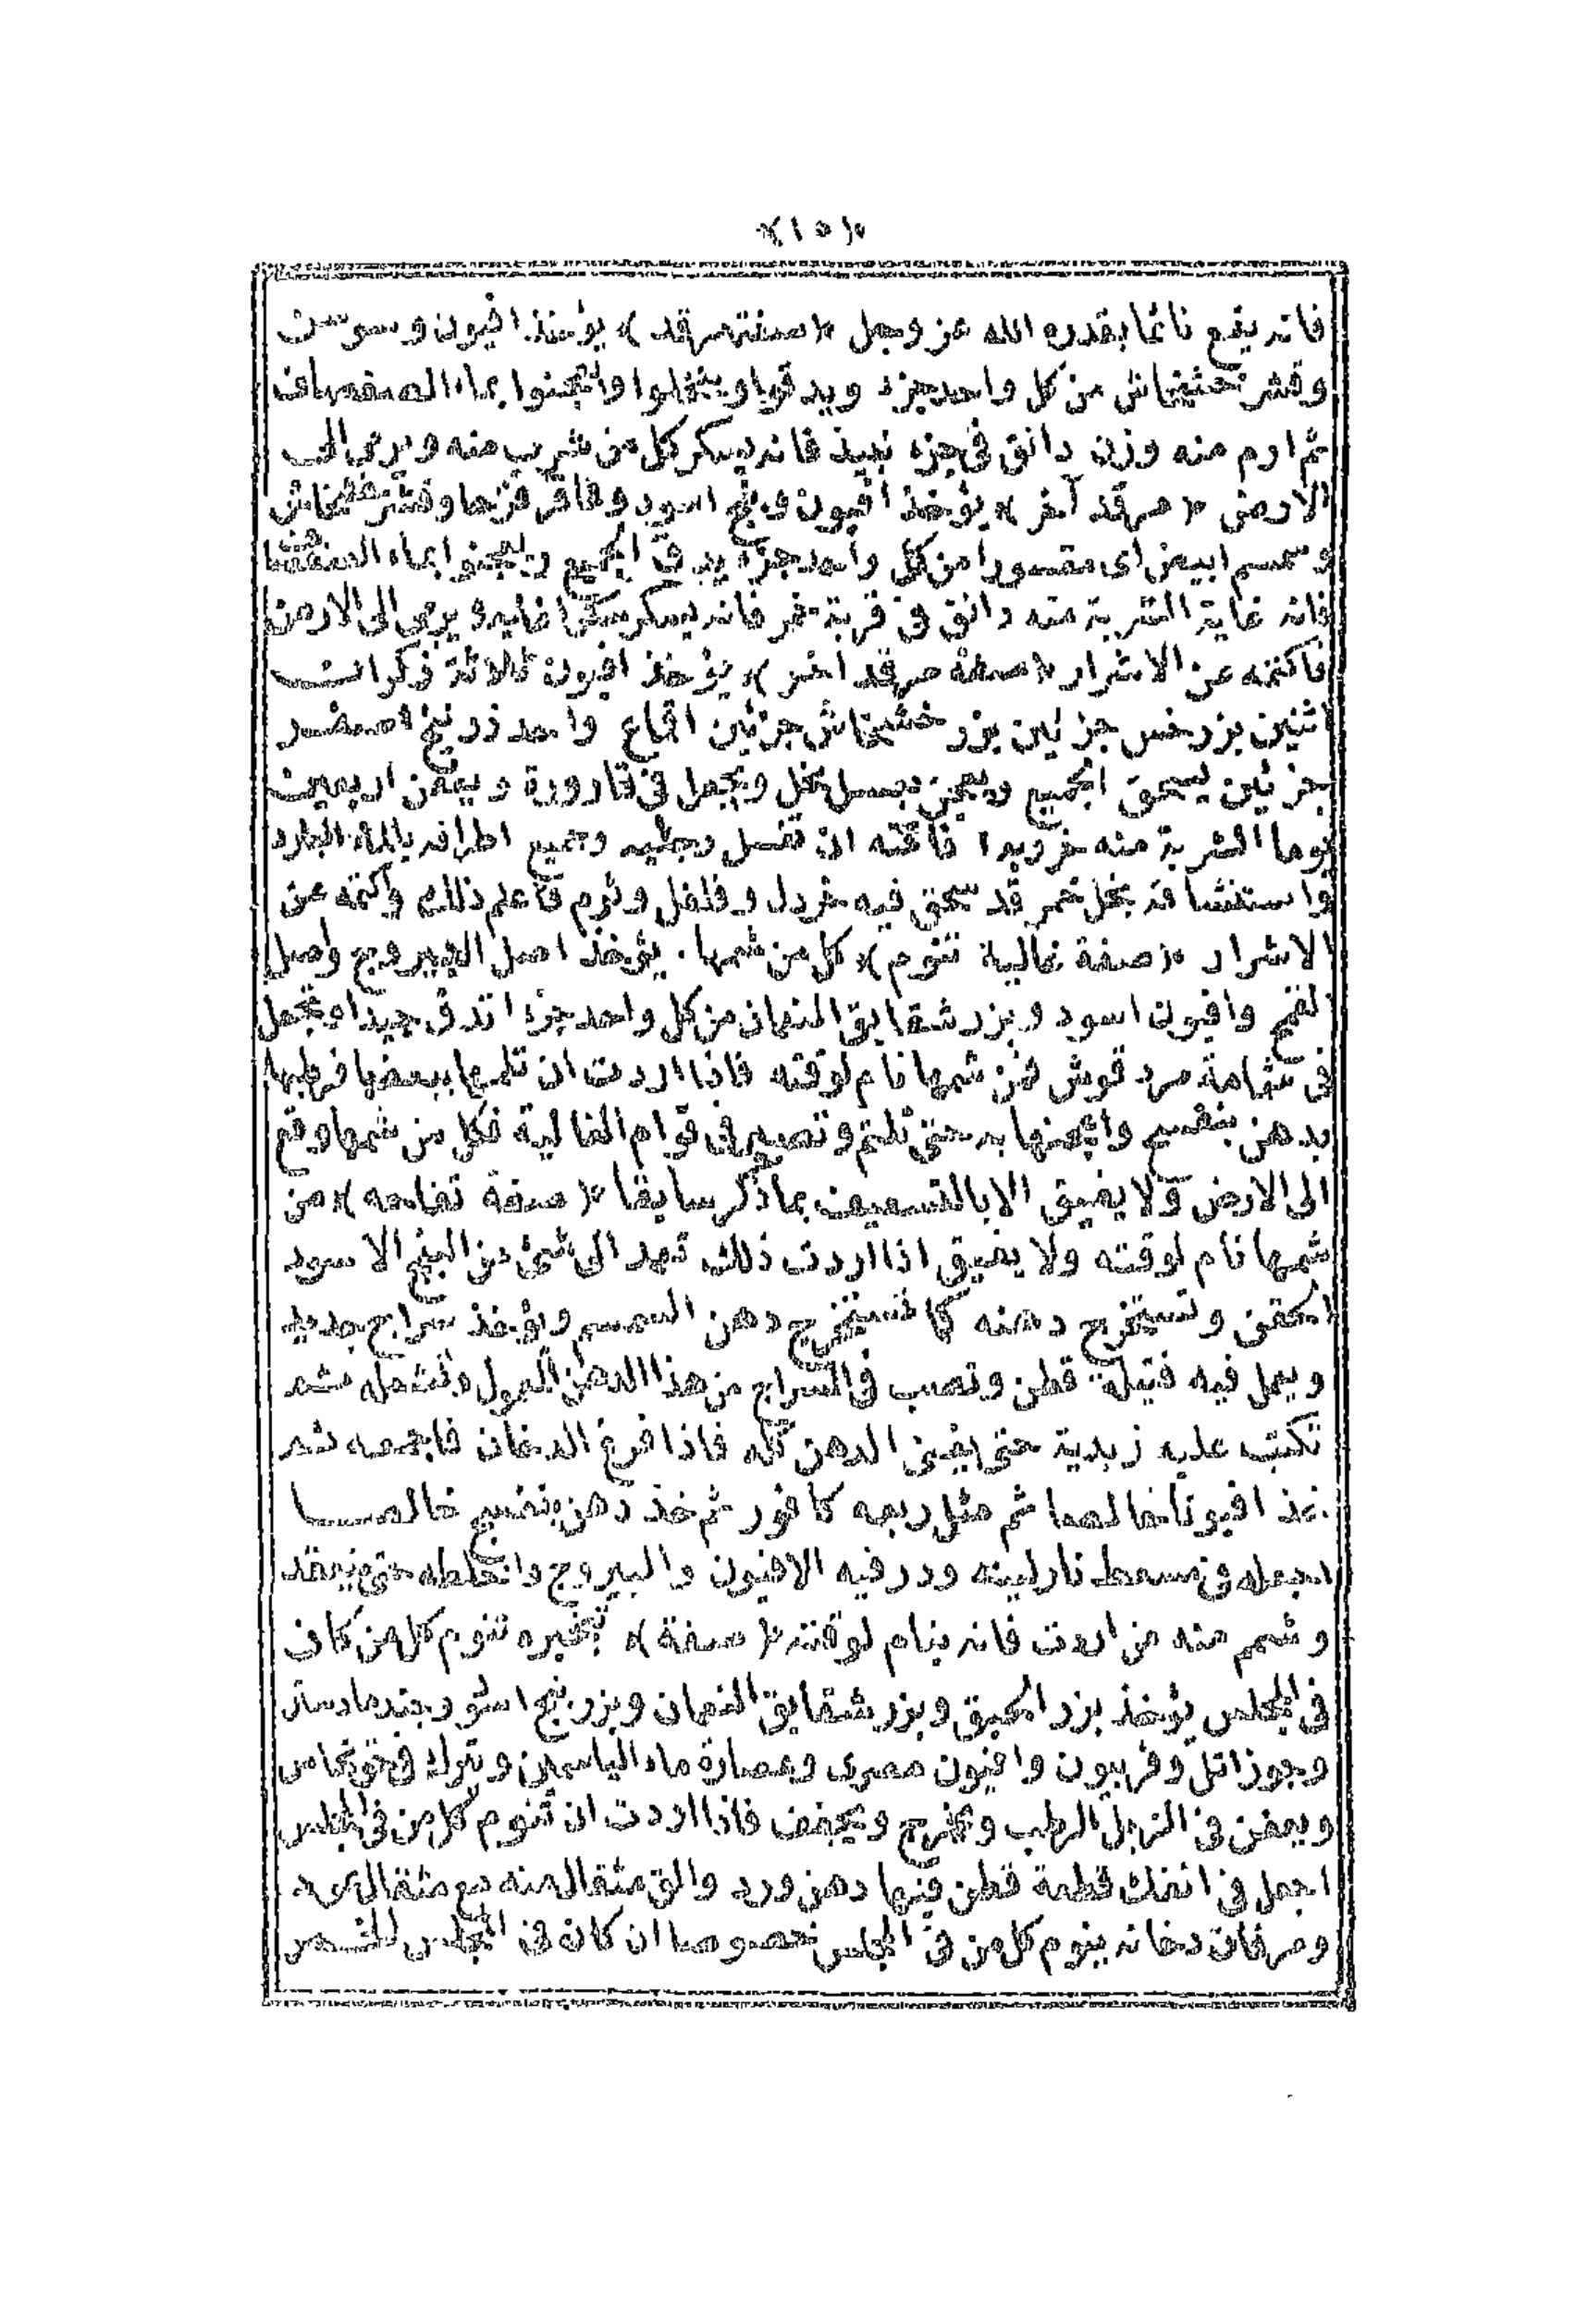 ﴿ ٥١ ﴾
فانه يقع نائما بقدره الله عز وجل ﴿ صفته مرقد ﴾ يؤخذ افيون وسوسن
وقشر خشخاش من كل واحد جزء ويدقوا وينخلوا ويعجنوا بماء الصفصاف
ثم ارم منه وزن دانق فى جزء نبيذ فانه يسكر كل من شرب منه ويرمى الى
الارض ﴿ مرقد آخر ﴾ يؤخذ افيون وبنج اسود وعاقر قرحا وقشر خشخاش
وسمسم ابيض اى مقشورا من كل واحد جزء يدق الجميع ويعجنوا بماء
فانه غاية الشربة منه دانق فى قربة خمر فانه يسكر سكرا غايه ويرمى الى الارض
فاكتمه عن الاشرار ﴿ صفة مرقد اخر ﴾ يؤخذ افيون ثلاثة
بزر خس جزئين بزر خشخاش جزئين واحد زرنيخ اصفر
جزئين يسحق الجميع ويعجن بعسل نحل ويجعل فى قارورة ويعفن اربعين
يوما الشربة منه فافقته ان تغسل رجليه وجميع اطرافه بالماء البارد
واستنشاقه بخل خمر قد سحق فيه خردل وفلفل وثوم فاعلم ذلك واكتمه عن
الاشرار ﴿ صفة غالية تنوم ﴾ كل من شمها . يؤخذ اصل اليبروج واصل
وافيون اسود وبزر شقايق النعمان من كل واحد جزء تدق جيدا ويجعل
فى شمامة مردقوش فمن شمها نام لوقته فاذا اردت ان تلمها ببعضها فرطبها
بدهن بنفسج واعجنها به حتى تلتم وتصير فى قوام الغالية فكل من شمها وقع
الى الارض ولا يفيق الا بالتسعيف بما ذكر سابقا ﴿ صفة تفاحه ﴾ من
شمها نام لوقته ولا يفيق اذا اردت ذلك تعمد الى شئ من البنج الاسود
وتستخرج دهنه كما تستخرج دهن السمسم ويؤخذ سراج جديد
ويعمل فيه فتيلة قطن وتصب فى السراج من هذا الدهن المعمول وتشعله ثم
تكب عليه زبدية حتى يفنى الدهن كله فاذا فرغ الدخان فاجمعه ثم
خذ افيونا خالصا ثم مثل ربعه كافور ثم خذ دهن بنفسج خالصا
اجعله فى مسعط نار لينه وذر فيه الافيون واليبروج واخلطه حتى ينعقد
وشمم منه من اردت فانه ينام لوقته ﴿ صفة ﴾ تبخيره تنوم كل من كان
فى المجلس يؤخذ بزر الحبق وبزر شقايق النعمان وبزر بنج اسود
وجوز اتل وفربيون وافيون مصرى وعصارة ماء الياسمين ويترك فى حق نحاس
ويعفن فى الزبل الرطب ويخرج ويجفف فاذا اردت ان تنوم كل من فى المجلس
اجعل فى انفك قطعة قطن فيها دهن ورد والق مثقال منه مع مثقال
دخانه ينوم كل من فى المجلس خصوصا ان كان فى المجلس